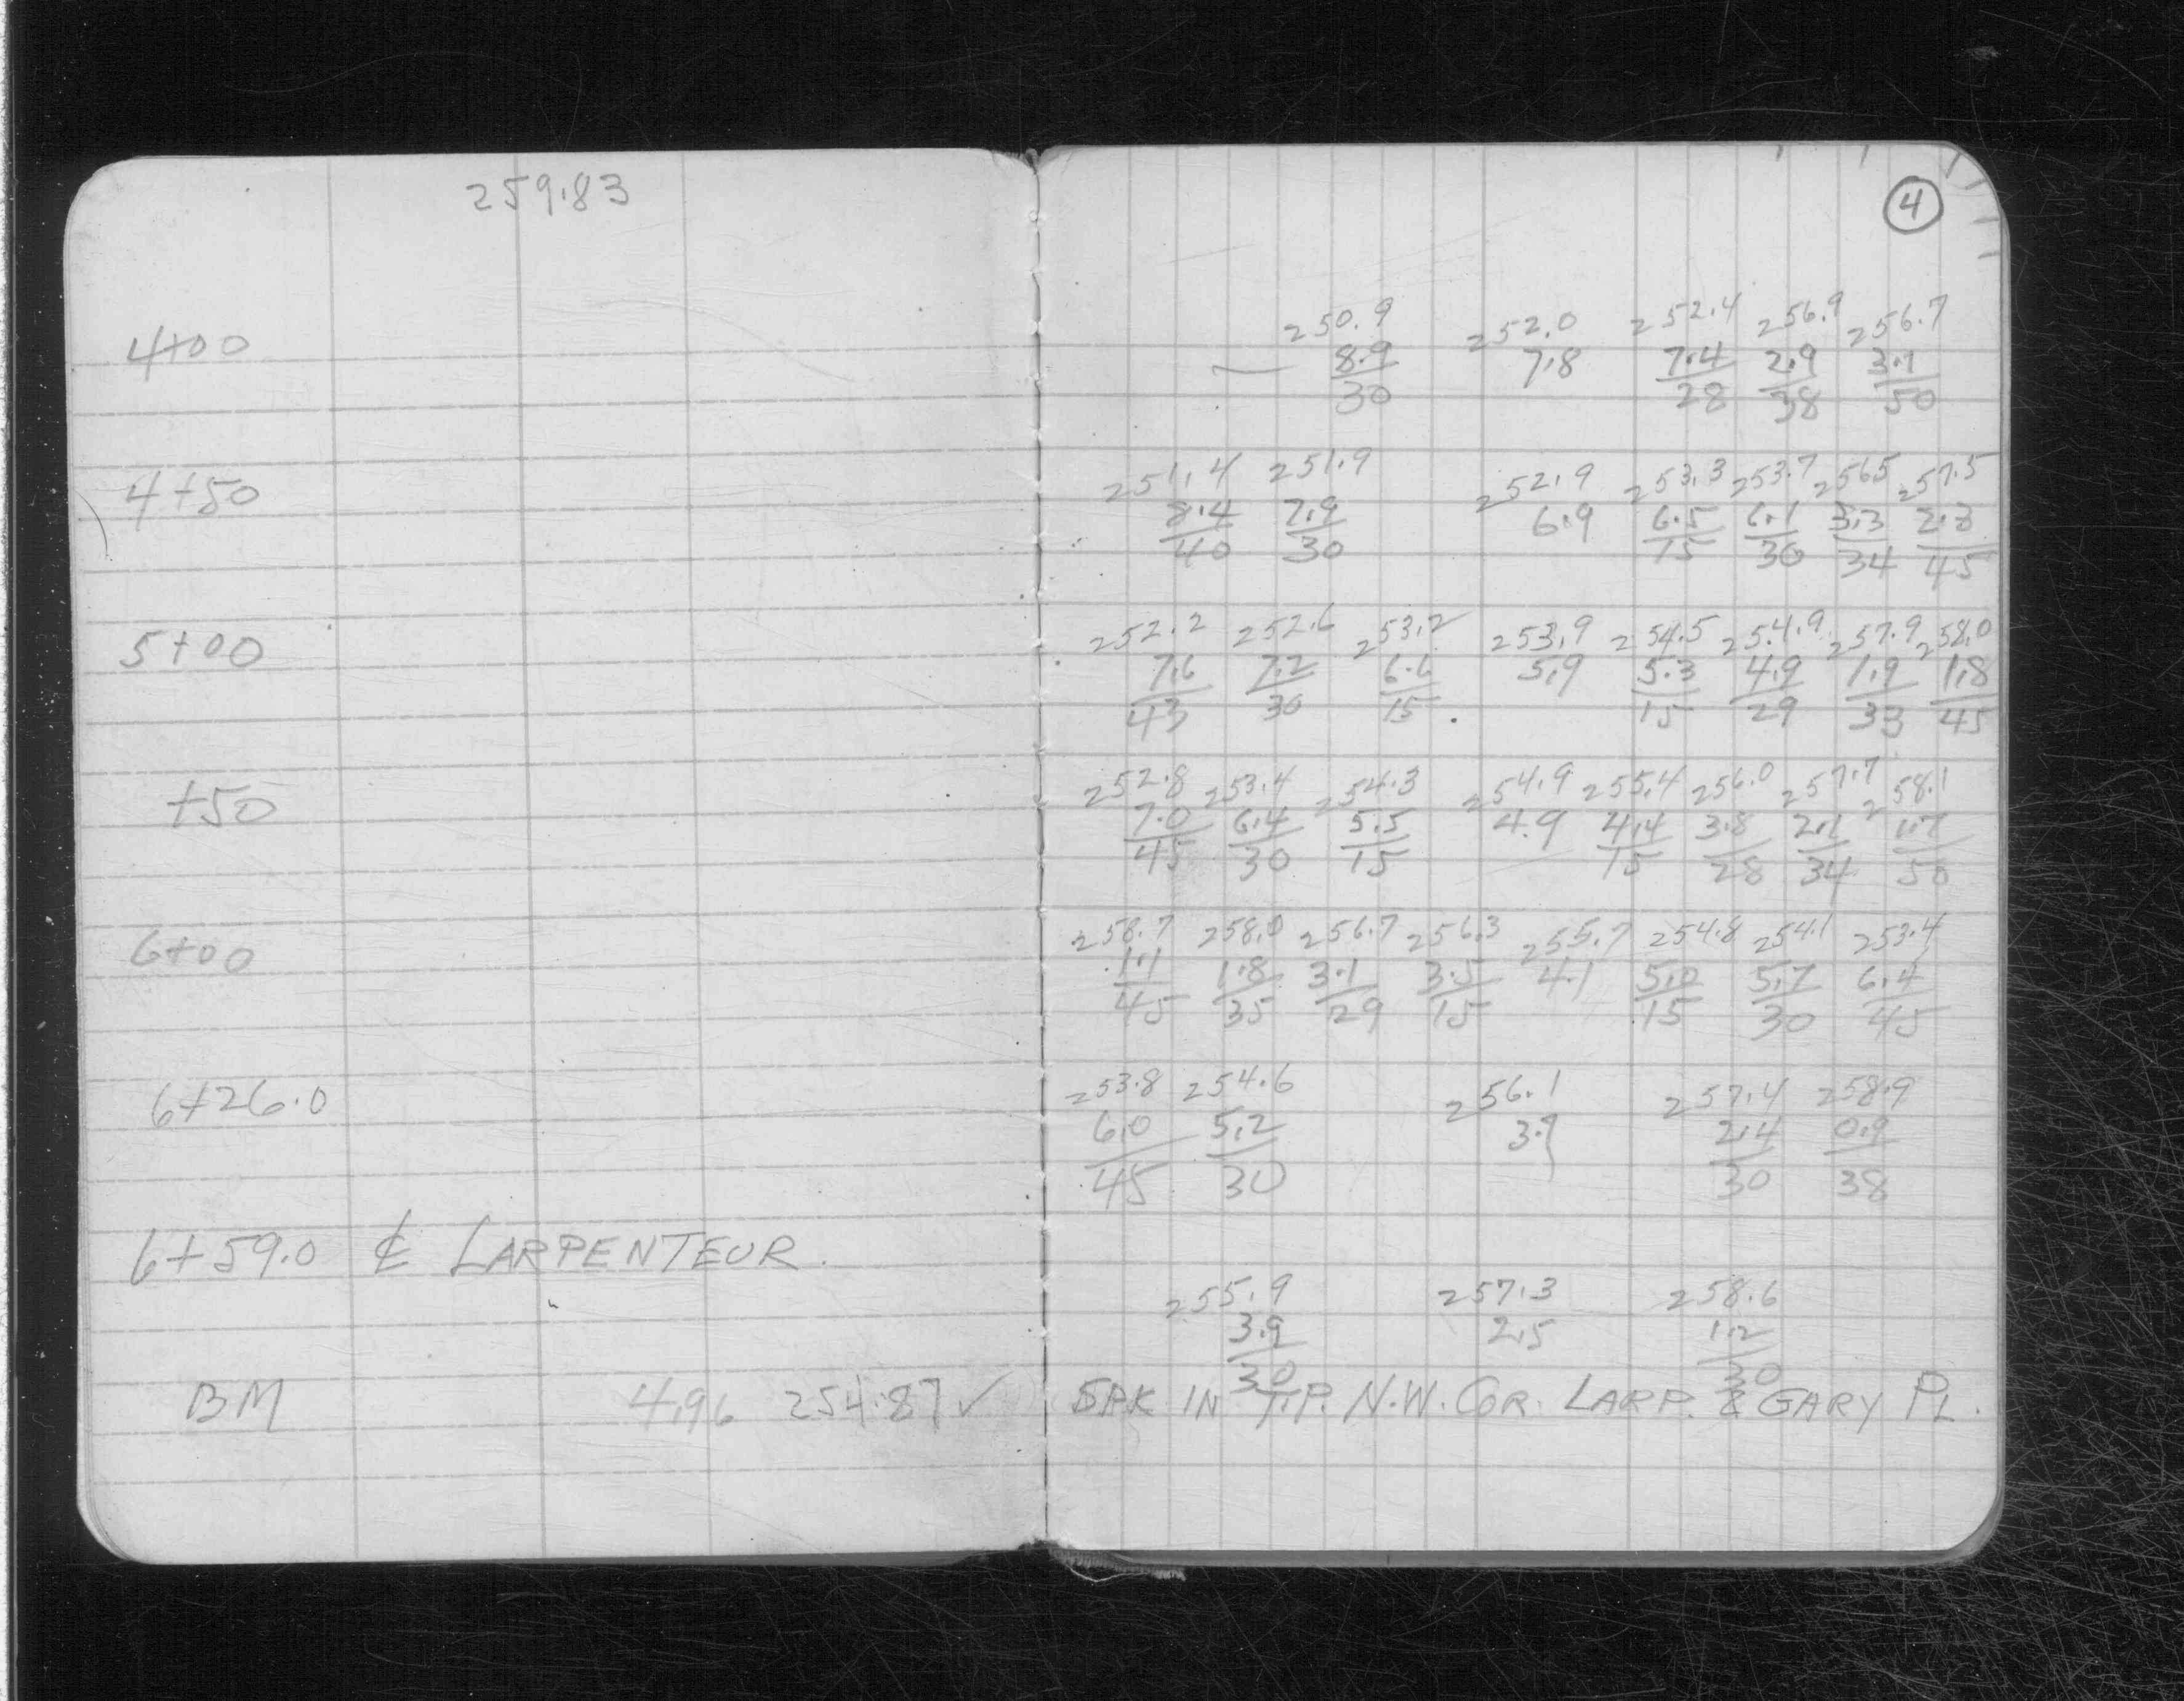 259.83
4
250.9 252.0 252.4 256.9 256.7
4+00 8.9 7.8 7.4 2.9 3.1
30 28 38 50
251.4 251.9 252.9 253.3 253.7 256.5 257.5
4+50 8.4 7.9 6.9 6.5 6.1 3.3 2.3
40 30 15 30 34 45
252.2 252.6 253.2 253.9 254.5 254.9 257.9 258.0
5+00 7.6 7.2 6.6 5.9 5.3 4.9 1.9 1.8
43 30 15 15 29 33 45
252.8 253.4 254.3 254.9 255.4 256.0 257.7 258.1
+50 7.0 6.4 5.5 4.9 4.4 3.8 2.1 1.7
45 30 15 15 28 34 50
258.7 258.0 256.7 256.3 255.7 254.8 254.1 253.4
6+00 1.1 1.8 3.1 3.5 4.1 5.0 5.7 6.4
45 35 29 15 15 30 45
253.8 254.6 256.1 257.4 258.9
6+26.0 6.0 5.2 3.7 2.4 0.9
45 30 30 38
6+59.0 ℄ LARPENTEUR.
255.9 257.3 258.6
3.9 2.5 1.2
30 30
BM 4.96 254.87 ✓ SPK IN T.P. N.W. COR. LARP. & GARY PL.